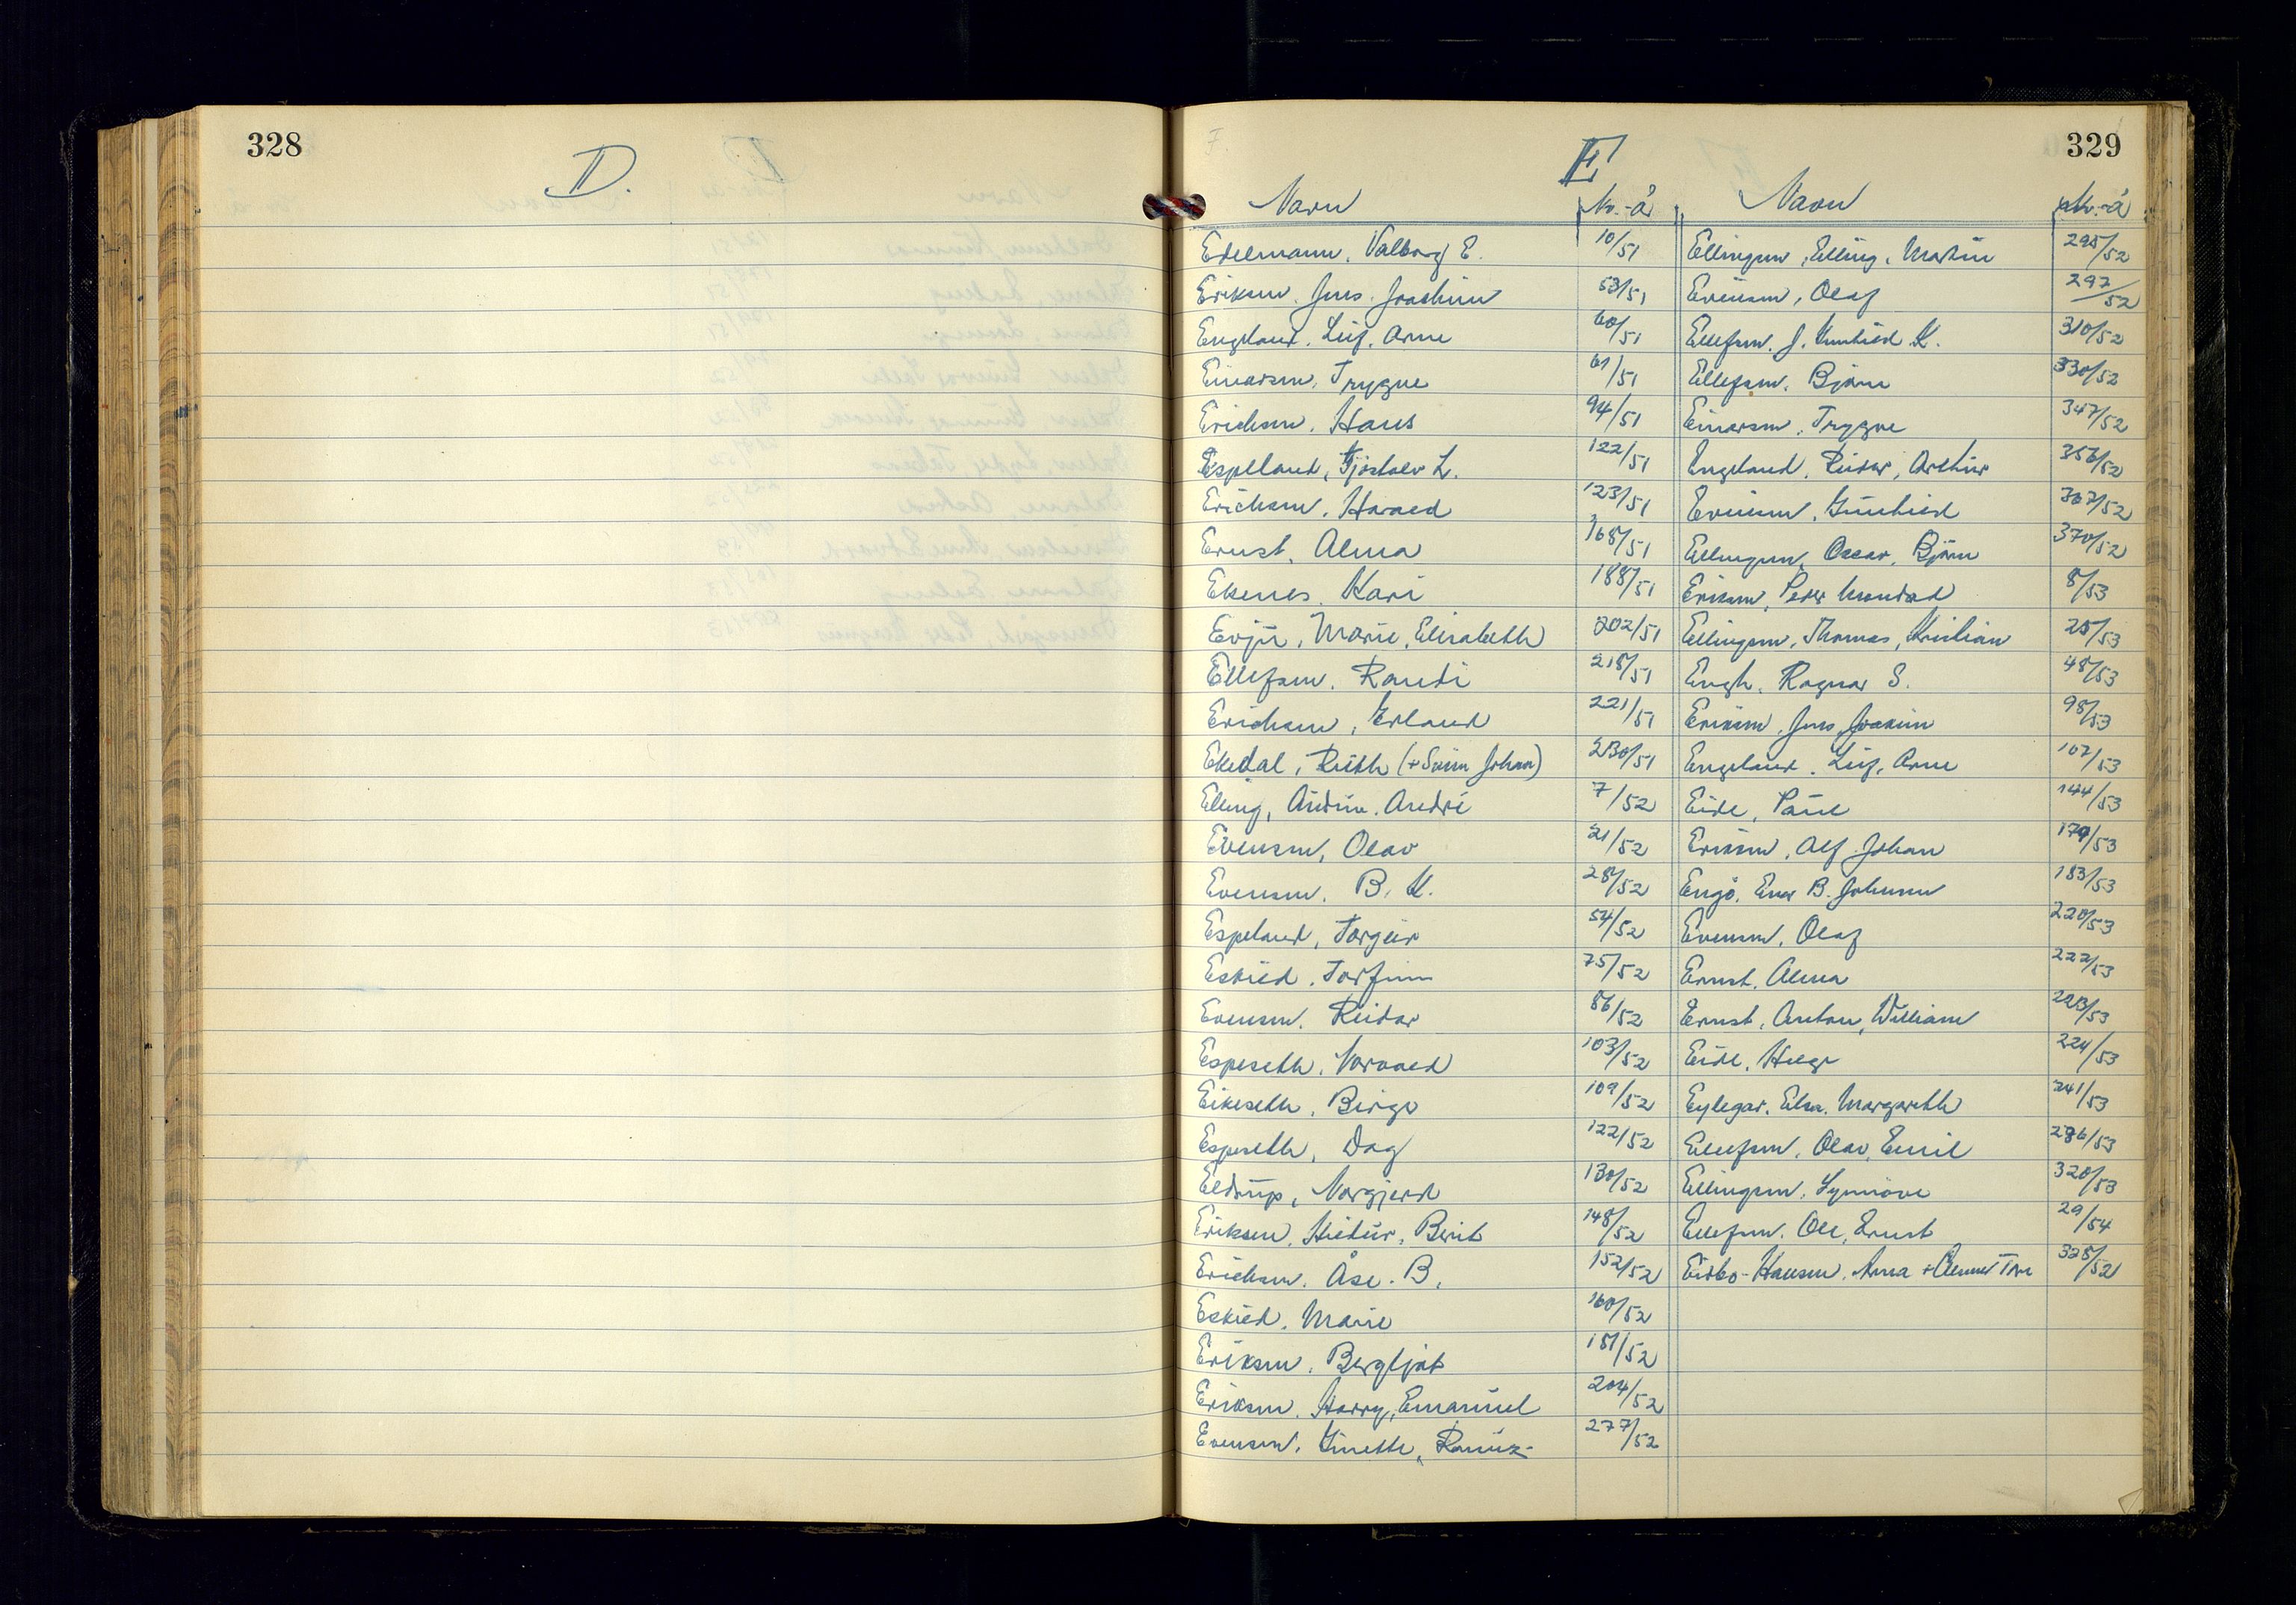 328
D.
329
E
Navn Nr.-å
Edelmann, Valborg E. 10/51
Eriksen, Jens Joachim 53/51
Engeland, Leif, Arne 60/51
Einarsen, Trygve 61/51
Erichsen, Hans 94/51
Espeland, Tjostolv L. 122/51
Erichsen, Harald 123/51
Ernst, Alma 168/51
Ekenes, Kari 188/51
Evju, Marie, Elisabeth 202/51
Ellefsen, Randi 218/51
Erichsen, Erland 221/51
Ekedal, Ruth (+ Svein Johan) 230/51
Elling, Audun, André 7/52
Evensen, Olav 21/52
Evensen, B. K. 28/52
Espeland, Torgeir 54/52
Eskild, Torfinn 75/52
Evensen, Reidar 86/52
Espeseth, Norvald 103/52
Eikeseth, Birger 109/52
Espeseth, Dag 122/52
Eldrup, Norgjerd 130/52
Eriksen, Heidur, Berit 148/52
Erichsen, Åse. B. 152/52
Eskild, Marie 160/52
Eriksen, Bergljot 181/52
Eriksen, Harry, Emanuel 204/52
Evensen, Ginette, 277/52
Navn Nr.-å
Ellingsen, Elling, Martin 295/52
Evensen, Olaf 297/52
Ellefsen, J. Gunhild K. 310/52
Ellefsen, Bjørn 330/52
Einarsen, Trygve 347/52
Engeland, Reidar, Arthur 356/52
Evensen, Gunhild 367/52
Ellingsen, Oscar, Bjørn 370/52
Eriksen, Peder 8/53
Ellingsen, Thomas, Kristian 25/53
Engh, Ragnar S. 48/53
Eriksen, Jens Joakim 98/53
Engeland, Leif, Arne 107/53
Eide, Paul 144/53
Eriksen, Alf Johan 179/53
Engø, Ener B. Johnsen 183/53
Evensen, Olaf 220/53
Ernst, Alma 222/53
Ernst, Anton, William 223/53
Eide, Helge 224/53
Eylegar, Elsa, Margareth 241/53
Ellefsen, Olav, Emil 286/53
Ellingsen, Synnøve 320/53
Ellefsen, Ole, Ernst 29/54
Eidbo-Hansen, Anna + Tore 328/52